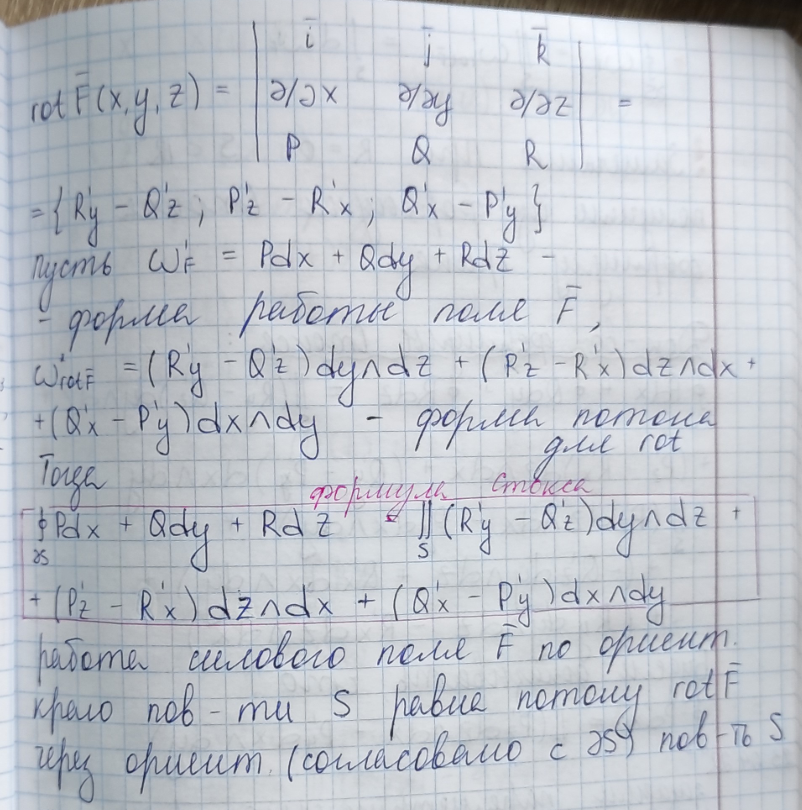 i̅ j̅ k̅
rot F̅(x,y,z) = | ∂/∂x ∂/∂y ∂/∂z | =
P Q R
= {R'y − Q'z ; P'z − R'x ; Q'x − P'y}
пусть ω'F̅ = Pdx + Qdy + Rdz −
− форма работы поля F̅,
ω rotF̅ = (R'y − Q'z)dy∧dz + (P'z − R'x)dz∧dx +
+ (Q'x − P'y)dx∧dy − форма потока
для rot
Тогда
формула Стокса
∮ Pdx + Qdy + Rdz = ∬ (R'y − Q'z)dy∧dz +
∂S S
+ (P'z − R'x)dz∧dx + (Q'x − P'y)dx∧dy
работа силового поля F̅ по ориент.
краю пов-ти S равна потоку rot F̅
через ориент. (согласовано с ∂S) пов-ть S